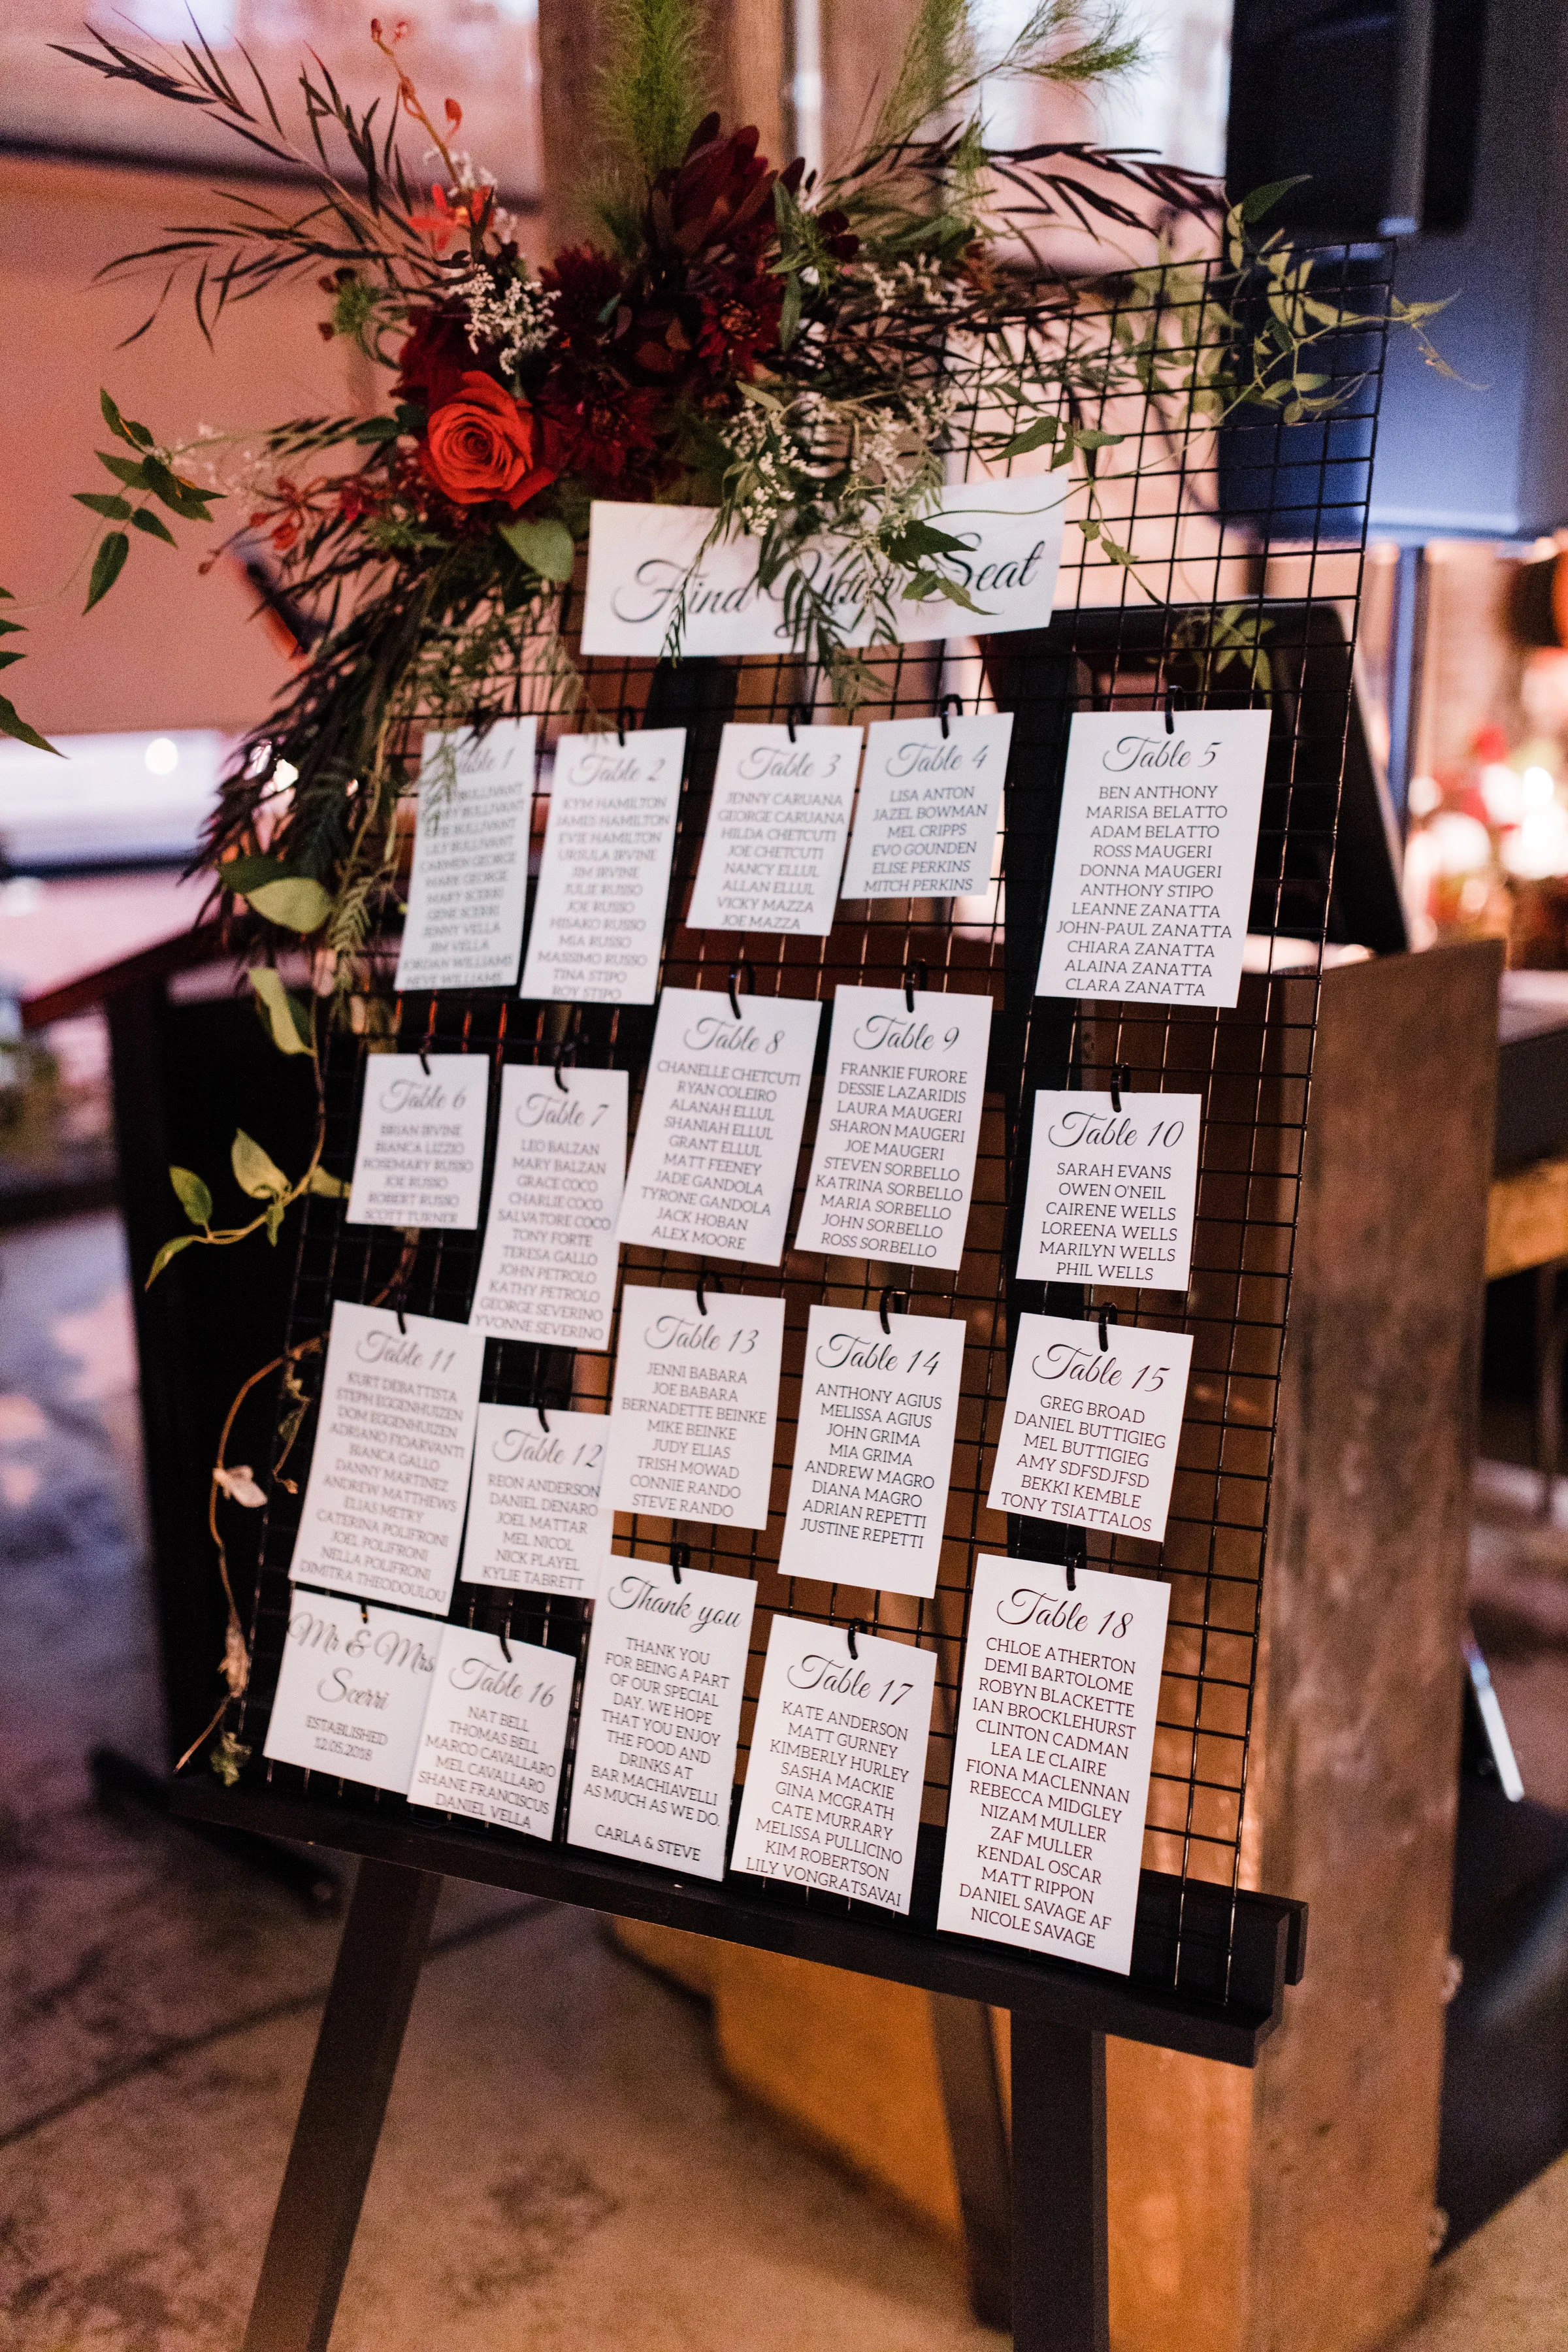 Find Your Seat
Table 1
BULLIVANT
BULLIVANT
EVIE BULLIVANT
LILY BULLIVANT
CARMEN GEORGE
MARK GEORGE
MARY SCERRI
GENE SCERRI
JENNY VELLA
JIM VELLA
JORDAN WILLIAMS
NEVE WILLIAMS
Table 2
KYM HAMILTON
JAMES HAMILTON
EVIE HAMILTON
URSULA IRVINE
JIM IRVINE
JULIE RUSSO
JOE RUSSO
HISAKO RUSSO
MIA RUSSO
MASSIMO RUSSO
TINA STIPO
ROY STIPO
Table 3
JENNY CARUANA
GEORGE CARUANA
HILDA CHETCUTI
JOE CHETCUTI
NANCY ELLUL
ALLAN ELLUL
VICKY MAZZA
JOE MAZZA
Table 4
LISA ANTON
JAZEL BOWMAN
MEL CRIPPS
EVO GOUNDEN
ELISE PERKINS
MITCH PERKINS
Table 5
BEN ANTHONY
MARISA BELATTO
ADAM BELATTO
ROSS MAUGERI
DONNA MAUGERI
ANTHONY STIPO
LEANNE ZANATTA
JOHN-PAUL ZANATTA
CHIARA ZANATTA
ALAINA ZANATTA
CLARA ZANATTA
Table 6
BRIAN IRVINE
BIANCA LIZZIO
ROSEMARY RUSSO
JOE RUSSO
ROBERT RUSSO
SCOTT TURNER
Table 7
LEO BALZAN
MARY BALZAN
GRACE COCO
CHARLIE COCO
SALVATORE COCO
TONY FORTE
TERESA GALLO
JOHN PETROLO
KATHY PETROLO
GEORGE SEVERINO
YVONNE SEVERINO
Table 8
CHANELLE CHETCUTI
RYAN COLEIRO
ALANAH ELLUL
SHANIAH ELLUL
GRANT ELLUL
MATT FEENEY
JADE GANDOLA
TYRONE GANDOLA
JACK HOBAN
ALEX MOORE
Table 9
FRANKIE FURORE
DESSIE LAZARIDIS
LAURA MAUGERI
SHARON MAUGERI
JOE MAUGERI
STEVEN SORBELLO
KATRINA SORBELLO
MARIA SORBELLO
JOHN SORBELLO
ROSS SORBELLO
Table 10
SARAH EVANS
OWEN O'NEIL
CAIRENE WELLS
LOREENA WELLS
MARILYN WELLS
PHIL WELLS
Table 11
KURT DEBATTISTA
STEPH EGGENHUIZEN
DOM EGGENHUIZEN
ADRIANO FIGARVANTI
BIANCA GALLO
DANNY MARTINEZ
ANDREW MATTHEWS
ELIAS METRY
CATERINA POLIFRONI
JOEL POLIFRONI
NELLA POLIFRONI
DIMITRA THEODOULOU
Table 12
REON ANDERSON
DANIEL DENARO
JOEL MATTAR
MEL NICOL
NICK PLAYEL
KYLIE TABRETT
Table 13
JENNI BABARA
JOE BABARA
BERNADETTE BEINKE
MIKE BEINKE
JUDY ELIAS
TRISH MOWAD
CONNIE RANDO
STEVE RANDO
Table 14
ANTHONY AGIUS
MELISSA AGIUS
JOHN GRIMA
MIA GRIMA
ANDREW MAGRO
DIANA MAGRO
ADRIAN REPETTI
JUSTINE REPETTI
Table 15
GREG BROAD
DANIEL BUTTIGIEG
MEL BUTTIGIEG
AMY SDFSDJFSD
BEKKI KEMBLE
TONY TSIATTALOS
Mr & Mrs
Scerri
ESTABLISHED
12.05.2018
Table 16
NAT BELL
THOMAS BELL
MARCO CAVALLARO
MEL CAVALLARO
SHANE FRANCISCUS
DANIEL VELLA
Thank you
THANK YOU
FOR BEING A PART
OF OUR SPECIAL
DAY. WE HOPE
THAT YOU ENJOY
THE FOOD AND
DRINKS AT
BAR MACHIAVELLI
AS MUCH AS WE DO.
CARLA & STEVE
Table 17
KATE ANDERSON
MATT GURNEY
KIMBERLY HURLEY
SASHA MACKIE
GINA MCGRATH
CATE MURRARY
MELISSA PULLICINO
KIM ROBERTSON
LILY VONGRATSAVAI
Table 18
CHLOE ATHERTON
DEMI BARTOLOME
ROBYN BLACKETTE
IAN BROCKLEHURST
CLINTON CADMAN
LEA LE CLAIRE
FIONA MACLENNAN
REBECCA MIDGLEY
NIZAM MULLER
ZAF MULLER
KENDAL OSCAR
MATT RIPPON
DANIEL SAVAGE AF
NICOLE SAVAGE